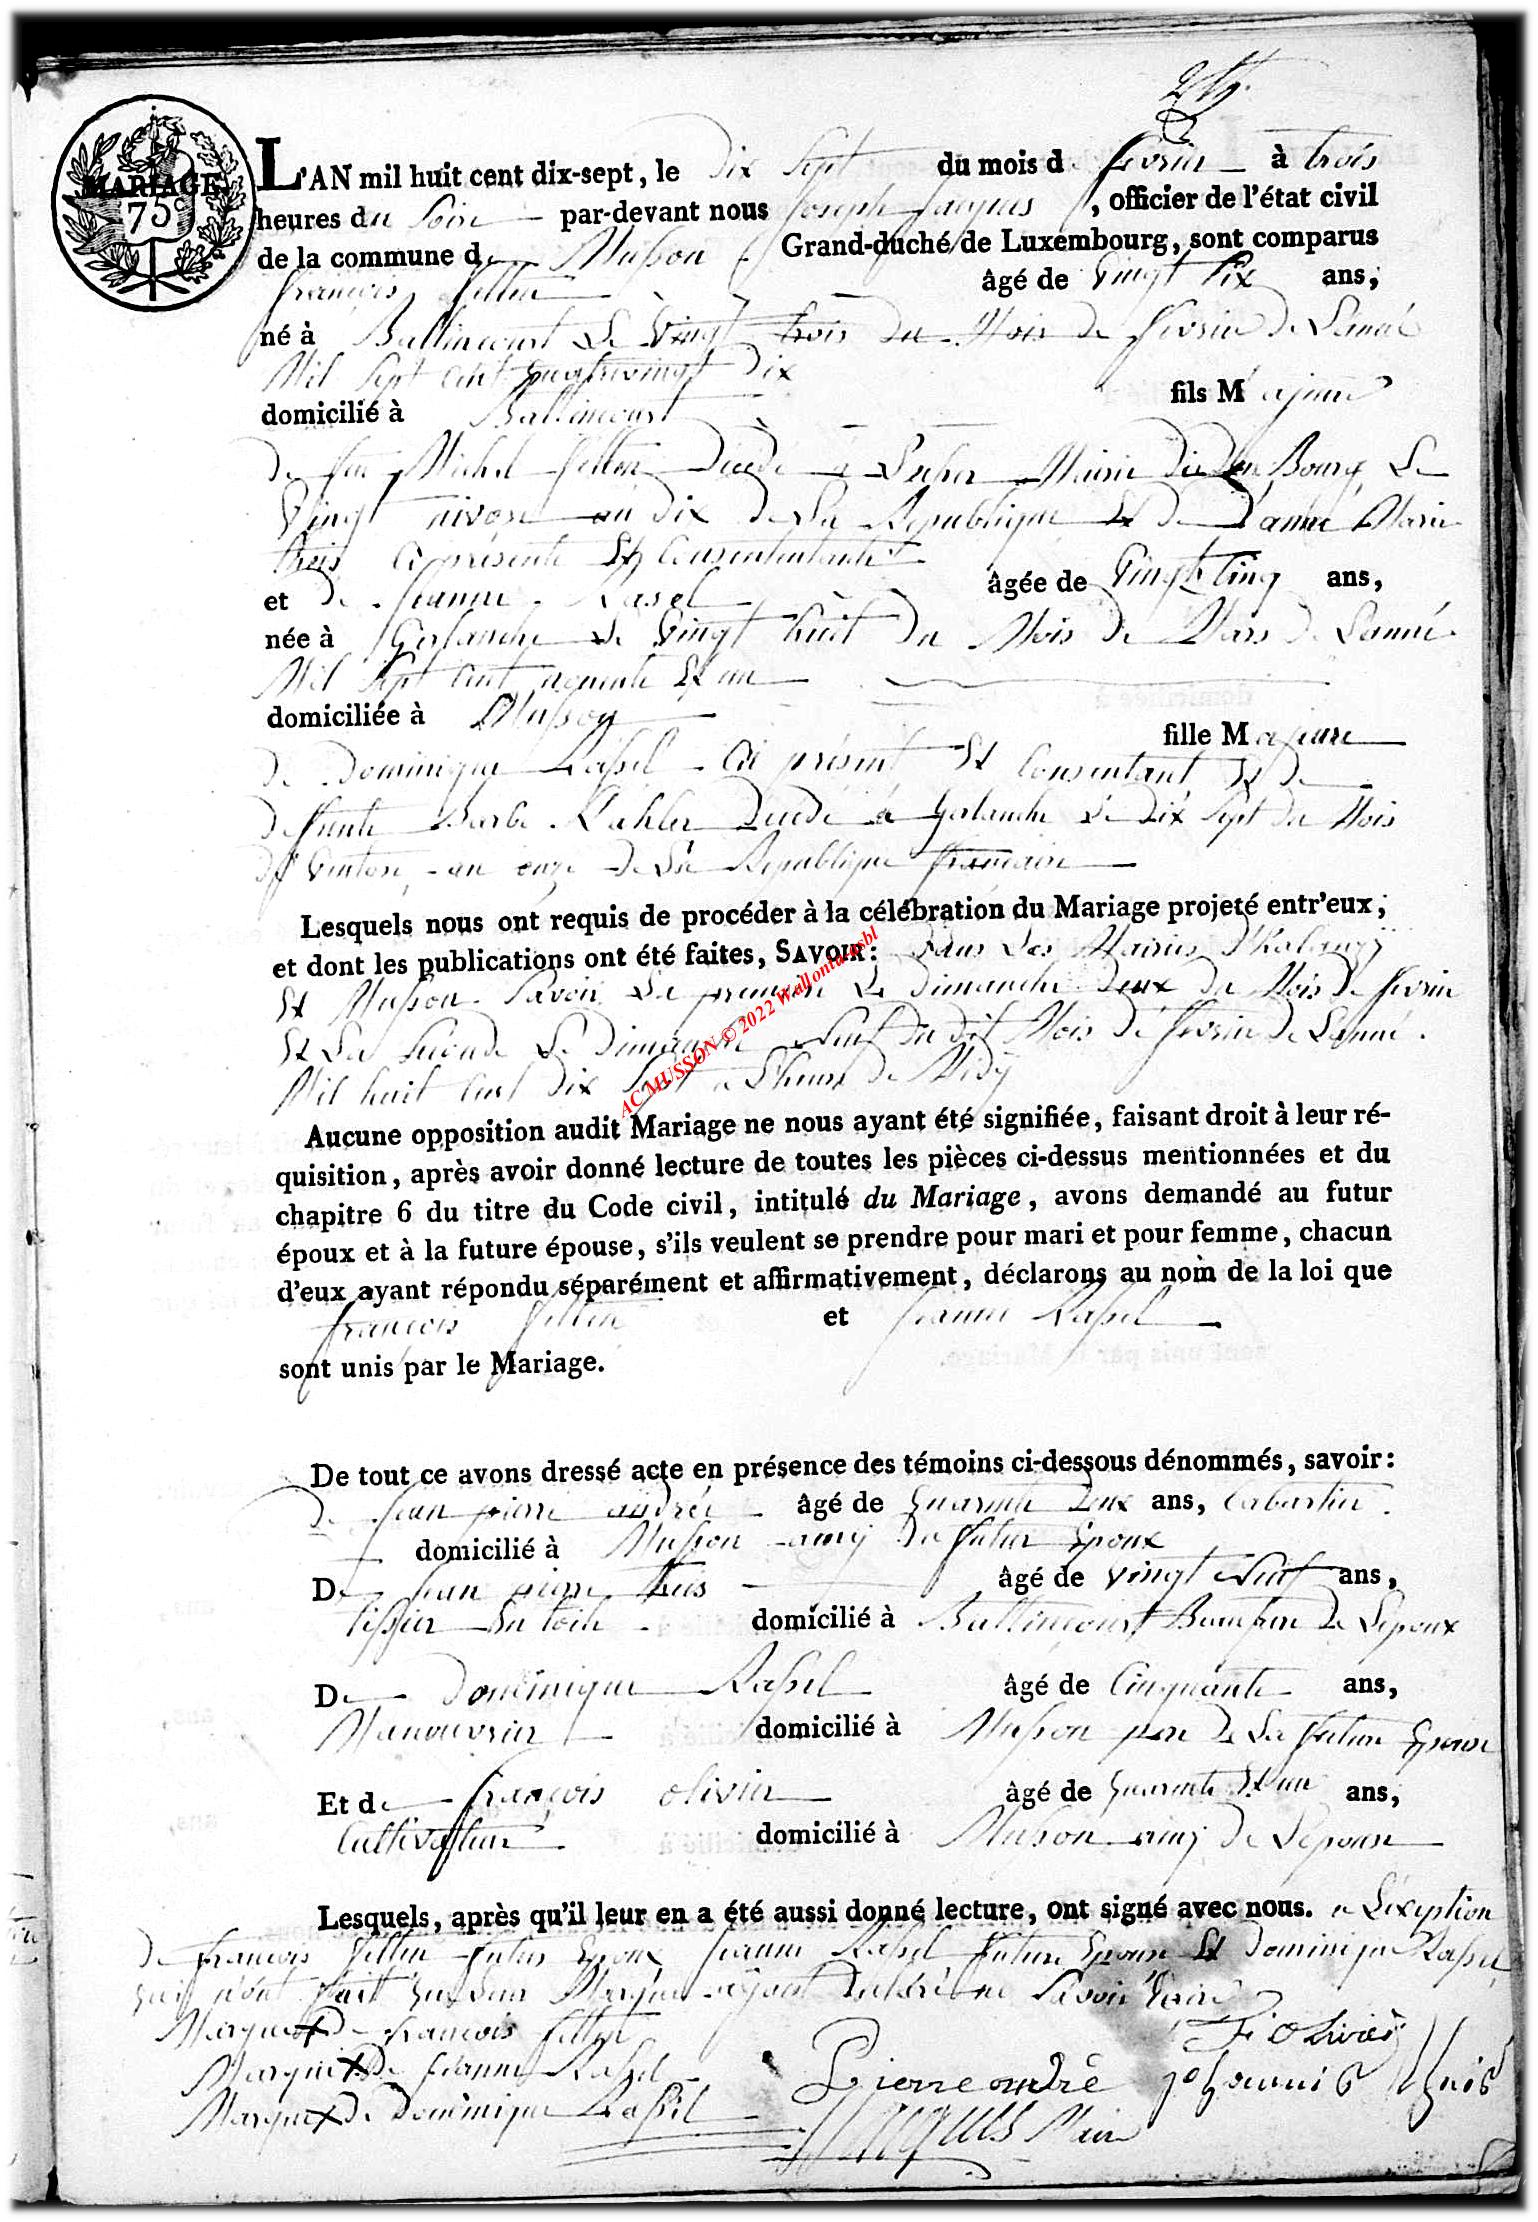 2th.
MARIAGE.
75 c
L'AN mil huit cent dix-sept, le Dix Sept du mois de fevrier à trois
heures du Soir par-devant nous Joseph Jacques, officier de l'état civil
de la commune de Musson Grand-duché de Luxembourg, sont comparus
françois fellen âgé de Vingt Six ans,
né à Battincourt Le Vingt trois du Mois de fevrier de L'année
Mil Sept Cent quatrevingt Dix
domicilié à Battincourt fils Majeur
De feu Michel fellen Décédé à Mairie
Vingt nivose an dix de La Republique Et de Marie
theis ci présente Et Consentante
et de Jeanne Rasel âgée de Vingt Cinq ans,
née à Gerlanche Le Vingt huit Du Mois De Mars De L'année
Mil Sept Cent nonente Et un
domiciliée à Musson fille Majeure
De Dominique Rassel Ci présent Et Consentant Et De
deffunte Barbe Kahler Decedé à Gerlanche Le Dix Sept du Mois
de Ventose an onze de La Republique francaise
Lesquels nous ont requis de procéder à la célébration du Mariage projeté entr'eux,
et dont les publications ont été faites, SAVOIR: Dans Les Mairies D'halanzÿ
Et Musson Savoir La premier Le Dimanche Deux Du Mois De fevrier
Et La Seconde Le Dimanche Neuf du dit Mois De fevrier De L'année
Mil huit Cent Dix Sept a L'heure De Midÿ
AC MUSSON © 2022 Wallonia asbl
Aucune opposition audit Mariage ne nous ayant été signifiée, faisant droit à leur ré-
quisition, après avoir donné lecture de toutes les pièces ci-dessus mentionnées et du
chapitre 6 du titre du Code civil, intitulé du Mariage, avons demandé au futur
époux et à la future épouse, s'ils veulent se prendre pour mari et pour femme, chacun
d'eux ayant répondu séparément et affirmativement, déclarons au nom de la loi que
françois fellen et Jeanne Rassel
sont unis par le Mariage.
De tout ce avons dressé acte en présence des témoins ci-dessous dénommés, savoir:
De Jean pierre andrée âgé de quarente Deux ans, Cabartier
domicilié à Musson amÿ du futur Epoux
De Jean pierre theis âgé de vingt Neuf ans,
tissier En toile domicilié à Battincourt Beaufrere De L'epoux
De Dominique Rassel âgé de Cinquante ans,
Manouvrier domicilié à Musson pere De La future Epouse
Et de françois olivier âgé de quarente Et un ans,
Cultivateur domicilié à Musson amÿ De L'epouse
Lesquels, après qu'il leur en a été aussi donné lecture, ont signé avec nous. a L'exeption
De francois fellen futur Epoux Jeanne Rassel future Epouse Et Dominique Rassel
qui n'ont fait que Leur Marque ayant Declaré ne Savoir Ecrire
Marque X De francois fellen
Marque X De Jeanne Rassel
Marque X De Dominique Rassel
F olivier
Pierre andrè
Johannes theis
Jacques Maire